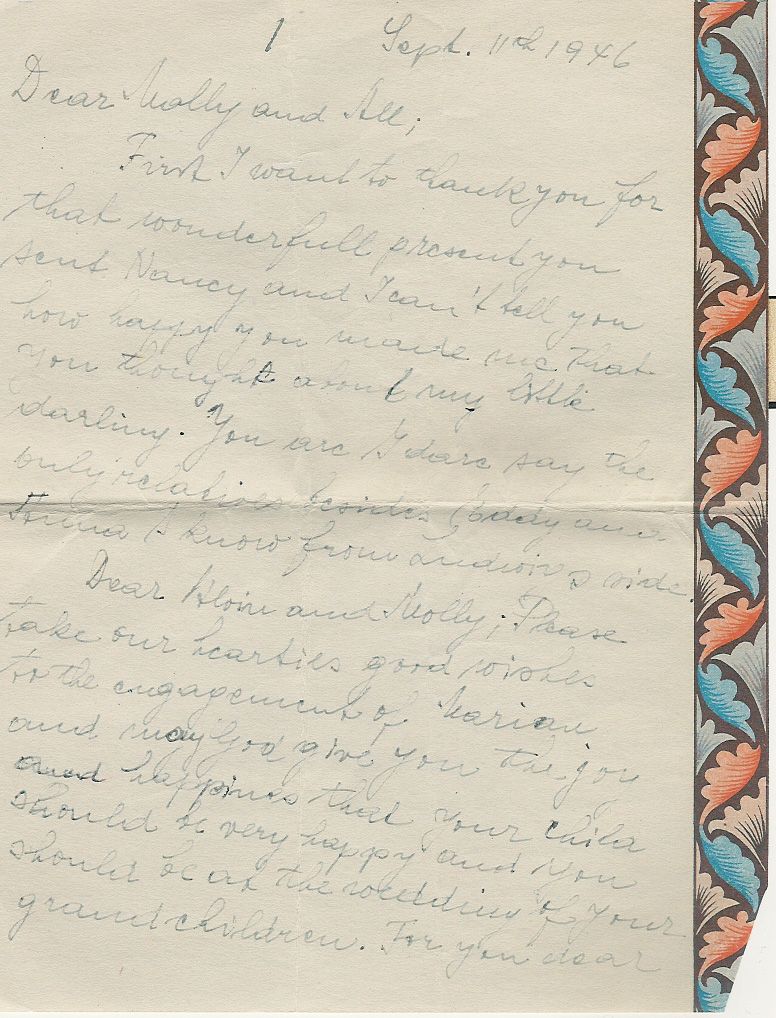 1 Sept. 11th 1946
Dear Molly and All;
First I want to thank you for
that wonderfull present you
sent Nancy and I can't tell you
how happy you made me that
you thought about my little
darling. You are I dare say the
only relatives besides and
I know from Ludwigs side.
Dear and Molly; Please
take our hearties good wishes
to the engagement of Marian
and may God give you the joy
and happines that your child
should be very happy and you
should be at the wedding of your
grandchildren. For you dear